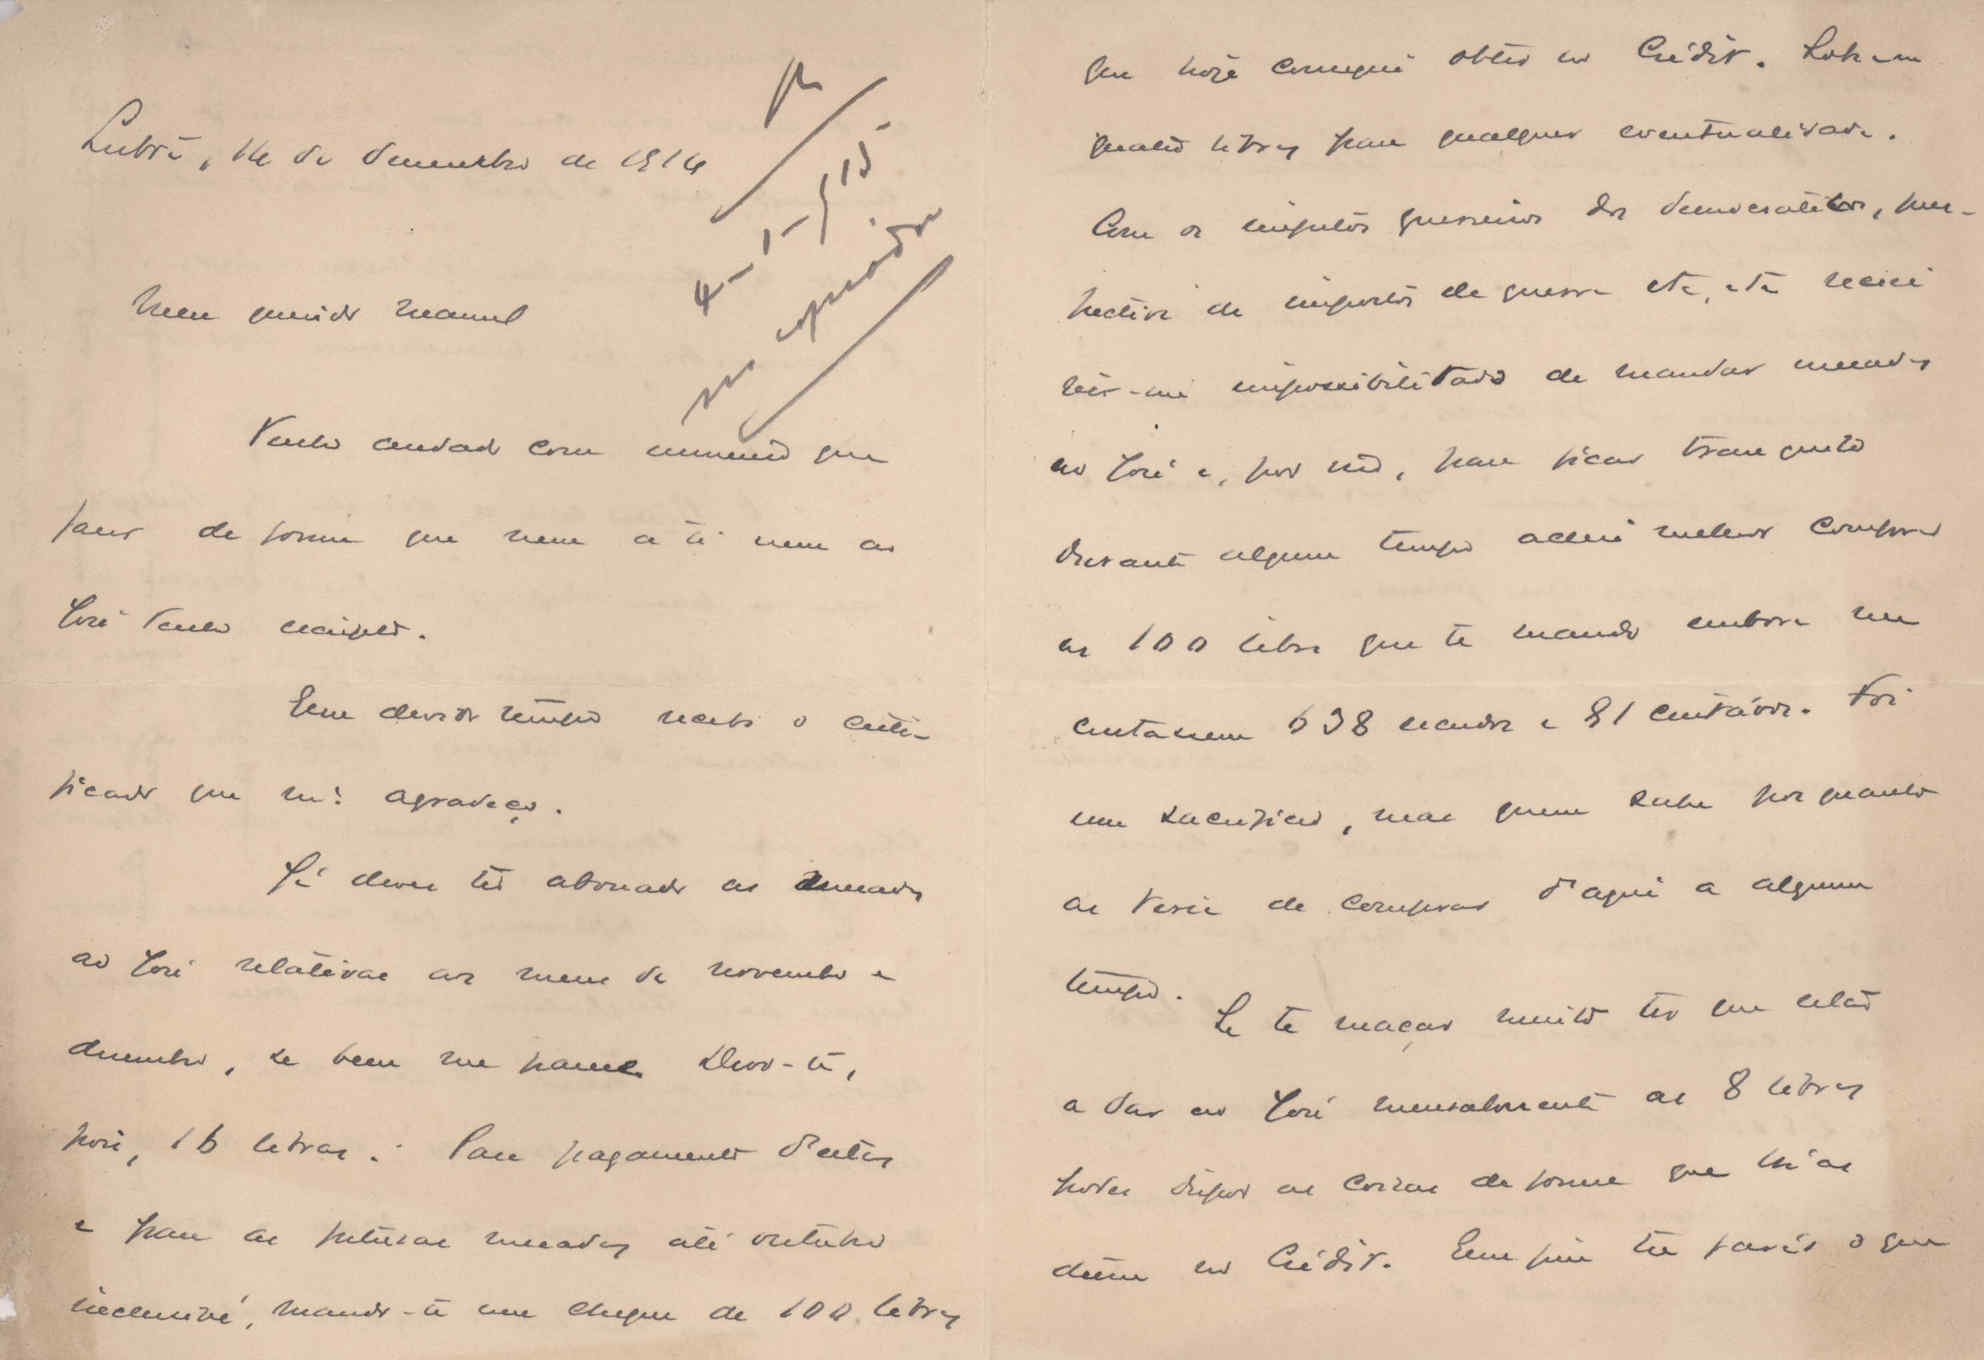 Lisbôa, 14 de dezembro de 1914
4-1-915
respondido
Meu querido Manuel
Tenho andado com immenso que
fazer de forma que nem a ti nem ao
José tenho escripto.
Em devido tempo recebi o certi-
ficado que m.to agradeço.
Já deves ter abonado as mezadas
ao José relativas aos mezes de novembro e
dezembro, se bem me parece. Devo-te,
pois, 16 libras. Para pagamento d'estas
e para as futuras mezadas até outubro
inclusivé, mando-te um cheque de 100 libras
que hoje consegui obter no Crédit. Sobram
quatro libras para qualquer eventualidade.
Com os impetos guerreiros dos democraticos, pers-
pectiva de impostos de guerra etc, etc receei
vêr-me impossibilitado de mandar mezadas
ao José e, por isso, para ficar tranquilo
durante algum tempo achei melhor comprar
as 100 libras que te mando embora me
custassem 638 escudos e 81 centávos. Foi
um sacrificio, mas quem sabe por quanto
as teria de comprar d'aqui a algum
tempo.
Se te maçar muito ter que estar
a dar ao José mensalmente as 8 libras
podes dispor as coisas de forma que lh'as
dêem no Crédit. Emfim tu farás o que